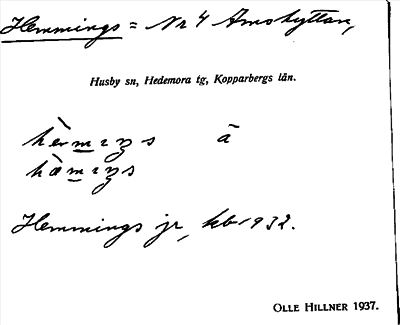 Hemmings = Nr 4 Amshyttan,
Husby sn, Hedemora tg, Kopparbergs län.
Hemmings jr, kb 1932.
OLLE HILLNER 1937.